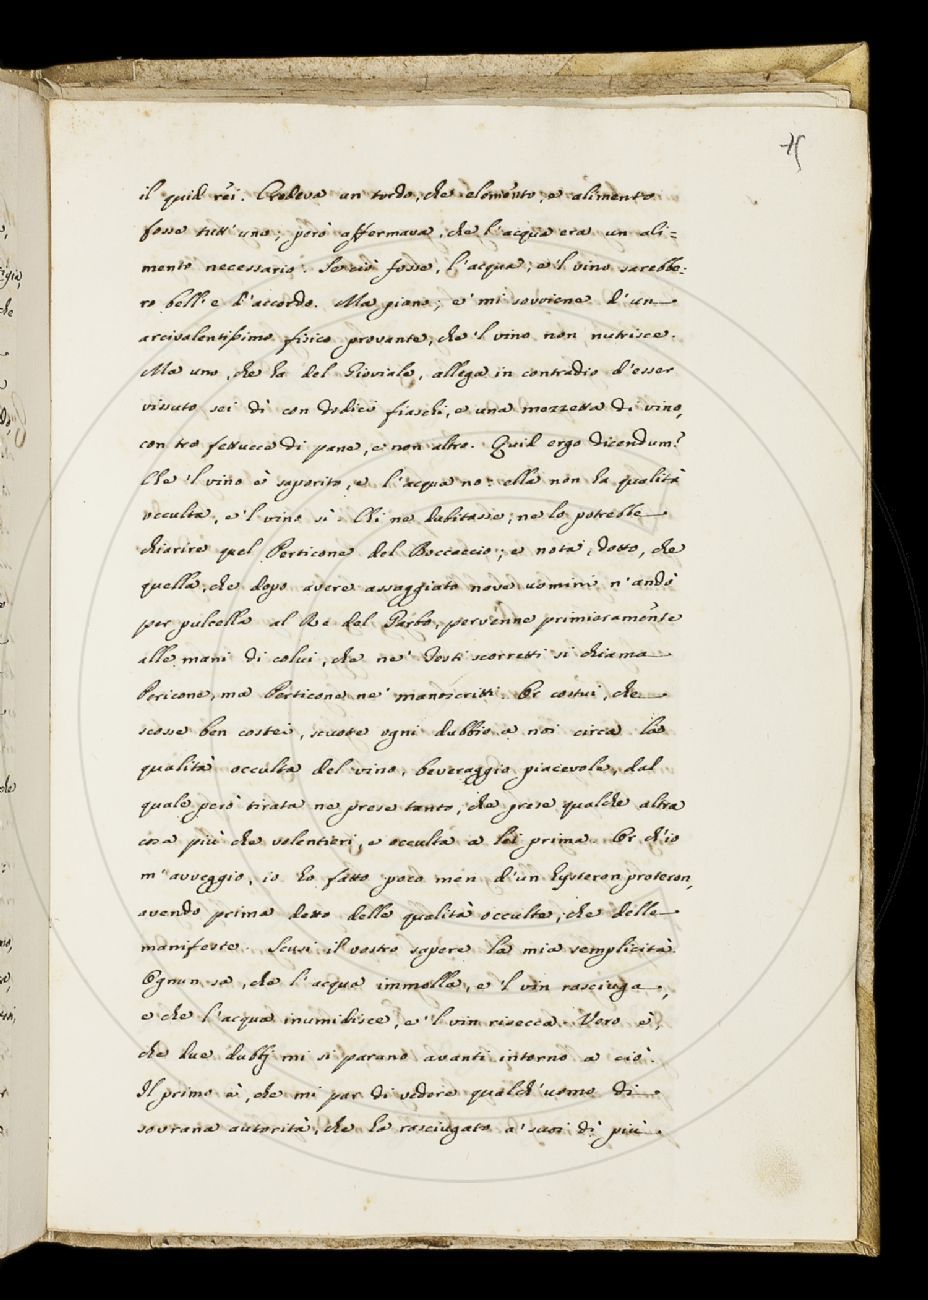 75
il quid rei. Credeva un tordo, che elemẽnto, e alimento
fosse tutt'uno; però affermava, che l'acqua era un ali=
mento necessario. Se ciò fosse, l'acqua, e'l vino sarebbe=
ro bell'e d'accordo. Ma piano; e' mi sovviene d'un
arcivalentissimo fisico provante, che'l vino non nutrisce.
Ma uno, che ha del Gioviale, allega in contradio d'esser
vissuto sei dì con dodici fiaschi, e una mezzetta di vino,
con tre fettucce di pane, e non altro. Quid ergo dicendum?
Che 'l vino è saporito, e l'acqua no: ella non ha qualità
occulta, e'l vino sì. Chi ne dubitasse, ne lo potrebbe
chiarire quel Perticone del Boccaccio; e nota, dotto, che
quella, che dopo avere assaggiato nove uomini n'andò
per pulcella al Re del Garbo, pervenne primieramẽnte
alle mani di colui, che ne' Testi scorretti si chiama
Pericone, ma Perticone ne' manoscritti. Or costui, che
scosse ben costei, scuote ogni dubbio a noi circa la
qualità occulta del vino, beveraggio piacevole, dal
quale però tirata ne prese tanto, che prese qualche altra
cosa più che volentieri, e occulta a lei prima. Or ch'io
m'avveggio, io ho fatto poco men d'un hysteron proteron,
avendo prima detto delle qualità occulte, che delle
manifeste. Scusi il vostro sapere la mia semplicità.
Ognun sa, che l'acqua immolla, e 'l vin rasciuga,
e che l'acqua inumidisce, e 'l vin risecca. Vero è,
che due dubbj mi si parano avanti intorno a ciò.
Il primo è, che mi par di vedere qualch'uomo di
sovrana autorità, che ha rasciugato a' suoi dì più